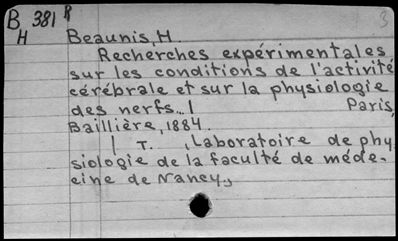 B 381 R 3
H Beaunis, H
Recherches expérimentales
sur les conditions de l'activité
cérébrale et sur la physiologie
des nerfs.. I Paris,
Baillière, 1884.
I T. , Laboratoire de phy
siologie de la faculté de méde-
cine de Nancy.,